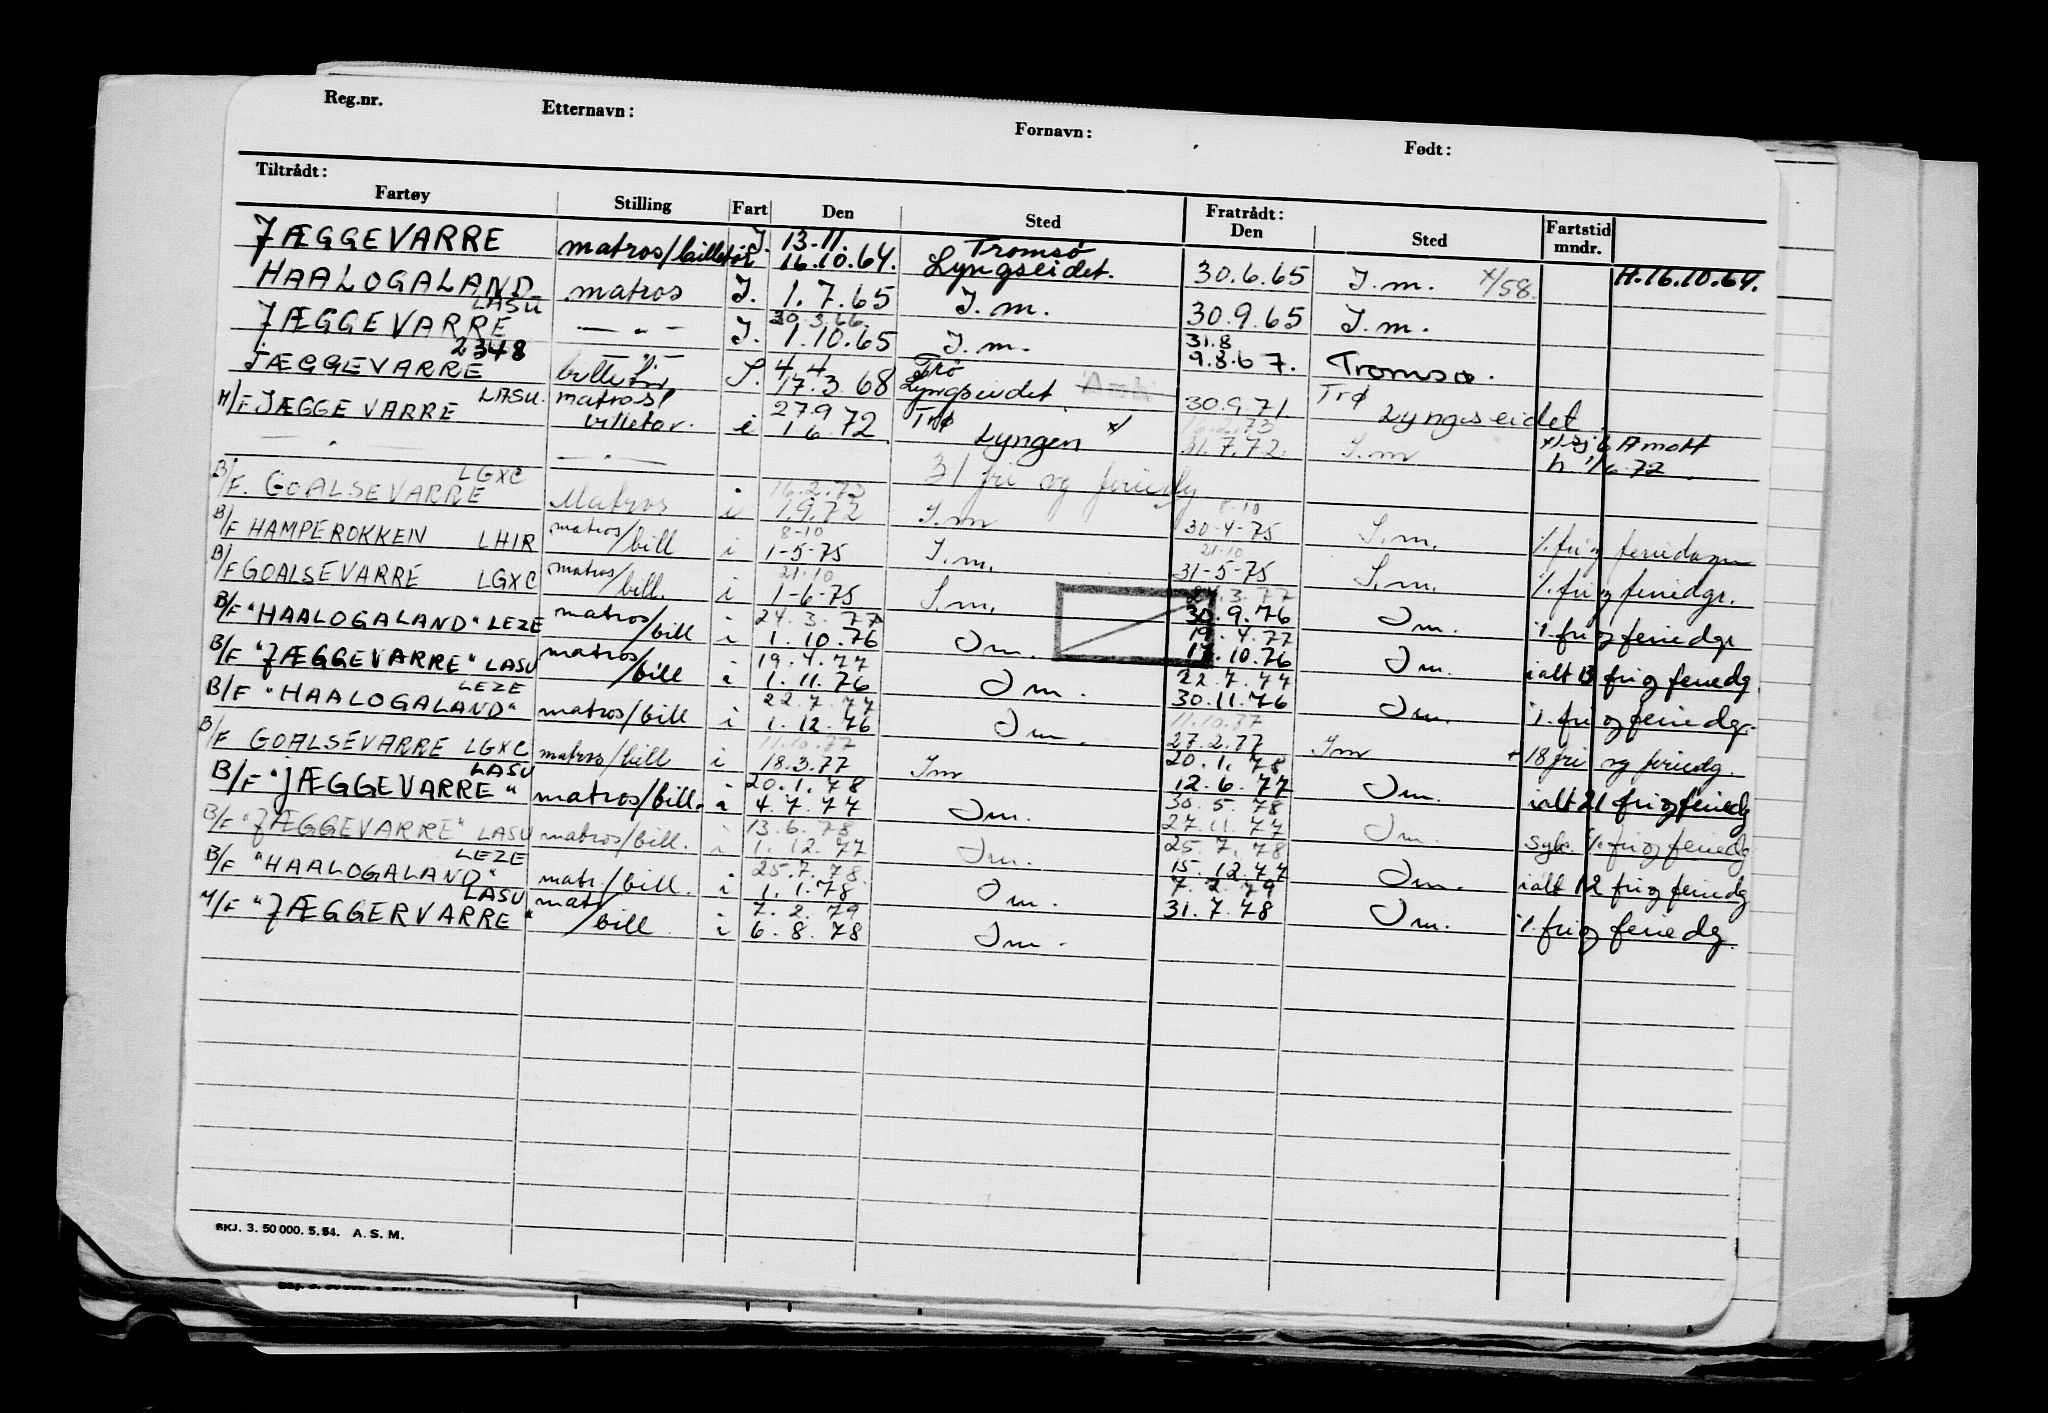 Reg.nr. Etternavn: Fornavn: Født:
Tiltrådt: Fratrådt:
Fartøy Stilling Fart Den Sted Den Sted Fartstid mndr.
JÆGGEVARRE matros/billetør J. 13-11. 16.10.64. Tromsø Lyngseidet. 30.6.65 J.m. x/58. H.16.10.64.
HAALOGALAND matros J. 1.7.65 J.m. 30.9.65 J.m.
JÆGGEVARRE LASU — " — J. 30.3.66. 1.10.65 J.m. 31.8 9.8.67. Tromsø.
JÆGGEVARRE 2348 billetør S. 4.4 17.3.68 Trø Lyngseidet 30.9.71. Trø Lyngseidet.
M/F JÆGGEVARRE LASU. matros/ billetør. i 27.9 1.6.72 Trø Lyngen x/ 16.2.73 31.7.72. J.m x/ A mott
— " — — " — 31 fri og feriedg h 1/6-72.
B/F. GOALSEVARRE LGXC Matros i 16.2.73 1.9.72 J.m 8-10 30-4-75 J.m. %. fri og feriedager
B/F HAMPEROKKEN LHIR matros/bill i 8-10 1-5-75 J.m. 21.10 31-5-75 J.m. %. fri og feriedgr.
B/F GOALSEVARRE LGXC matros/bill. i 21.10 1-6-75 J.m. 24.3.77 30.9.76 Jm. %. fri og feriedgr
B/F "HAALOGALAND" LEZE matros/bill i 24.3.77 1.10.76 Jm. 19.4.77 17.10.76 Jm. ialt 13 fri og feriedg.
B/F "JÆGGEVARRE" LASU matros/bill i 19.4.77 1.11.76 Jm. 22.7.77 30.11.76 Jm. %. fri og feriedgr.
B/F "HAALOGALAND" LEZE matros/bill i 22.7.77 1.12.76 Jm. 11.10.77 27.2.77 Jm + 18 fri og feriedg.
B/F GOALSEVARRE LGXC matros/bill i 11.10.77 18.3.77 Jm 20.1.78 12.6.77 Jm. ialt 21 fri og feriedg
B/F "JÆGGEVARRE" LASU matros/bill. i 20.1.78 4.7.77 Jm. 30.5.78 27.11.77 Jm. syk. %. fri og feriedg
B/F "JÆGGEVARRE" LASU matros/bill. i 13.6.78 1.12.77 Jm. 25.7.78 15.12.77 Jm. ialt 12 fri og feriedg
B/F "HAALOGALAND" LEZE matr/bill. i 25.7.78 1.1.78 Jm. 7.2.79 31.7.78 Jm. %. fri og feriedg.
M/F "JÆGGERVARRE" LASU matr/bill i 7.2.79 6.8.78 Jm.
SKJ. 3. 50 000. 5. 54. A. S. M.